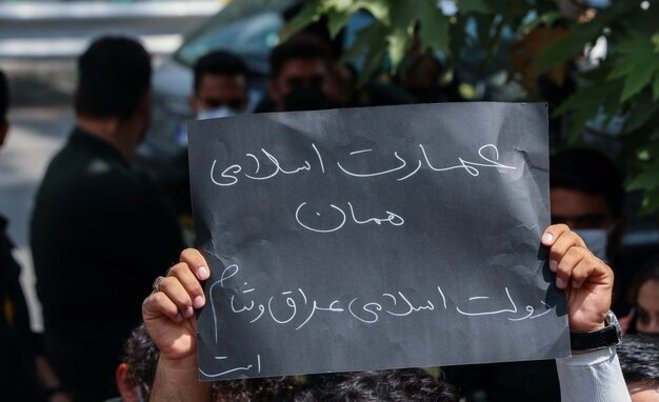 عمارت اسلامی
همان
دولت اسلامی عراق و شام
است